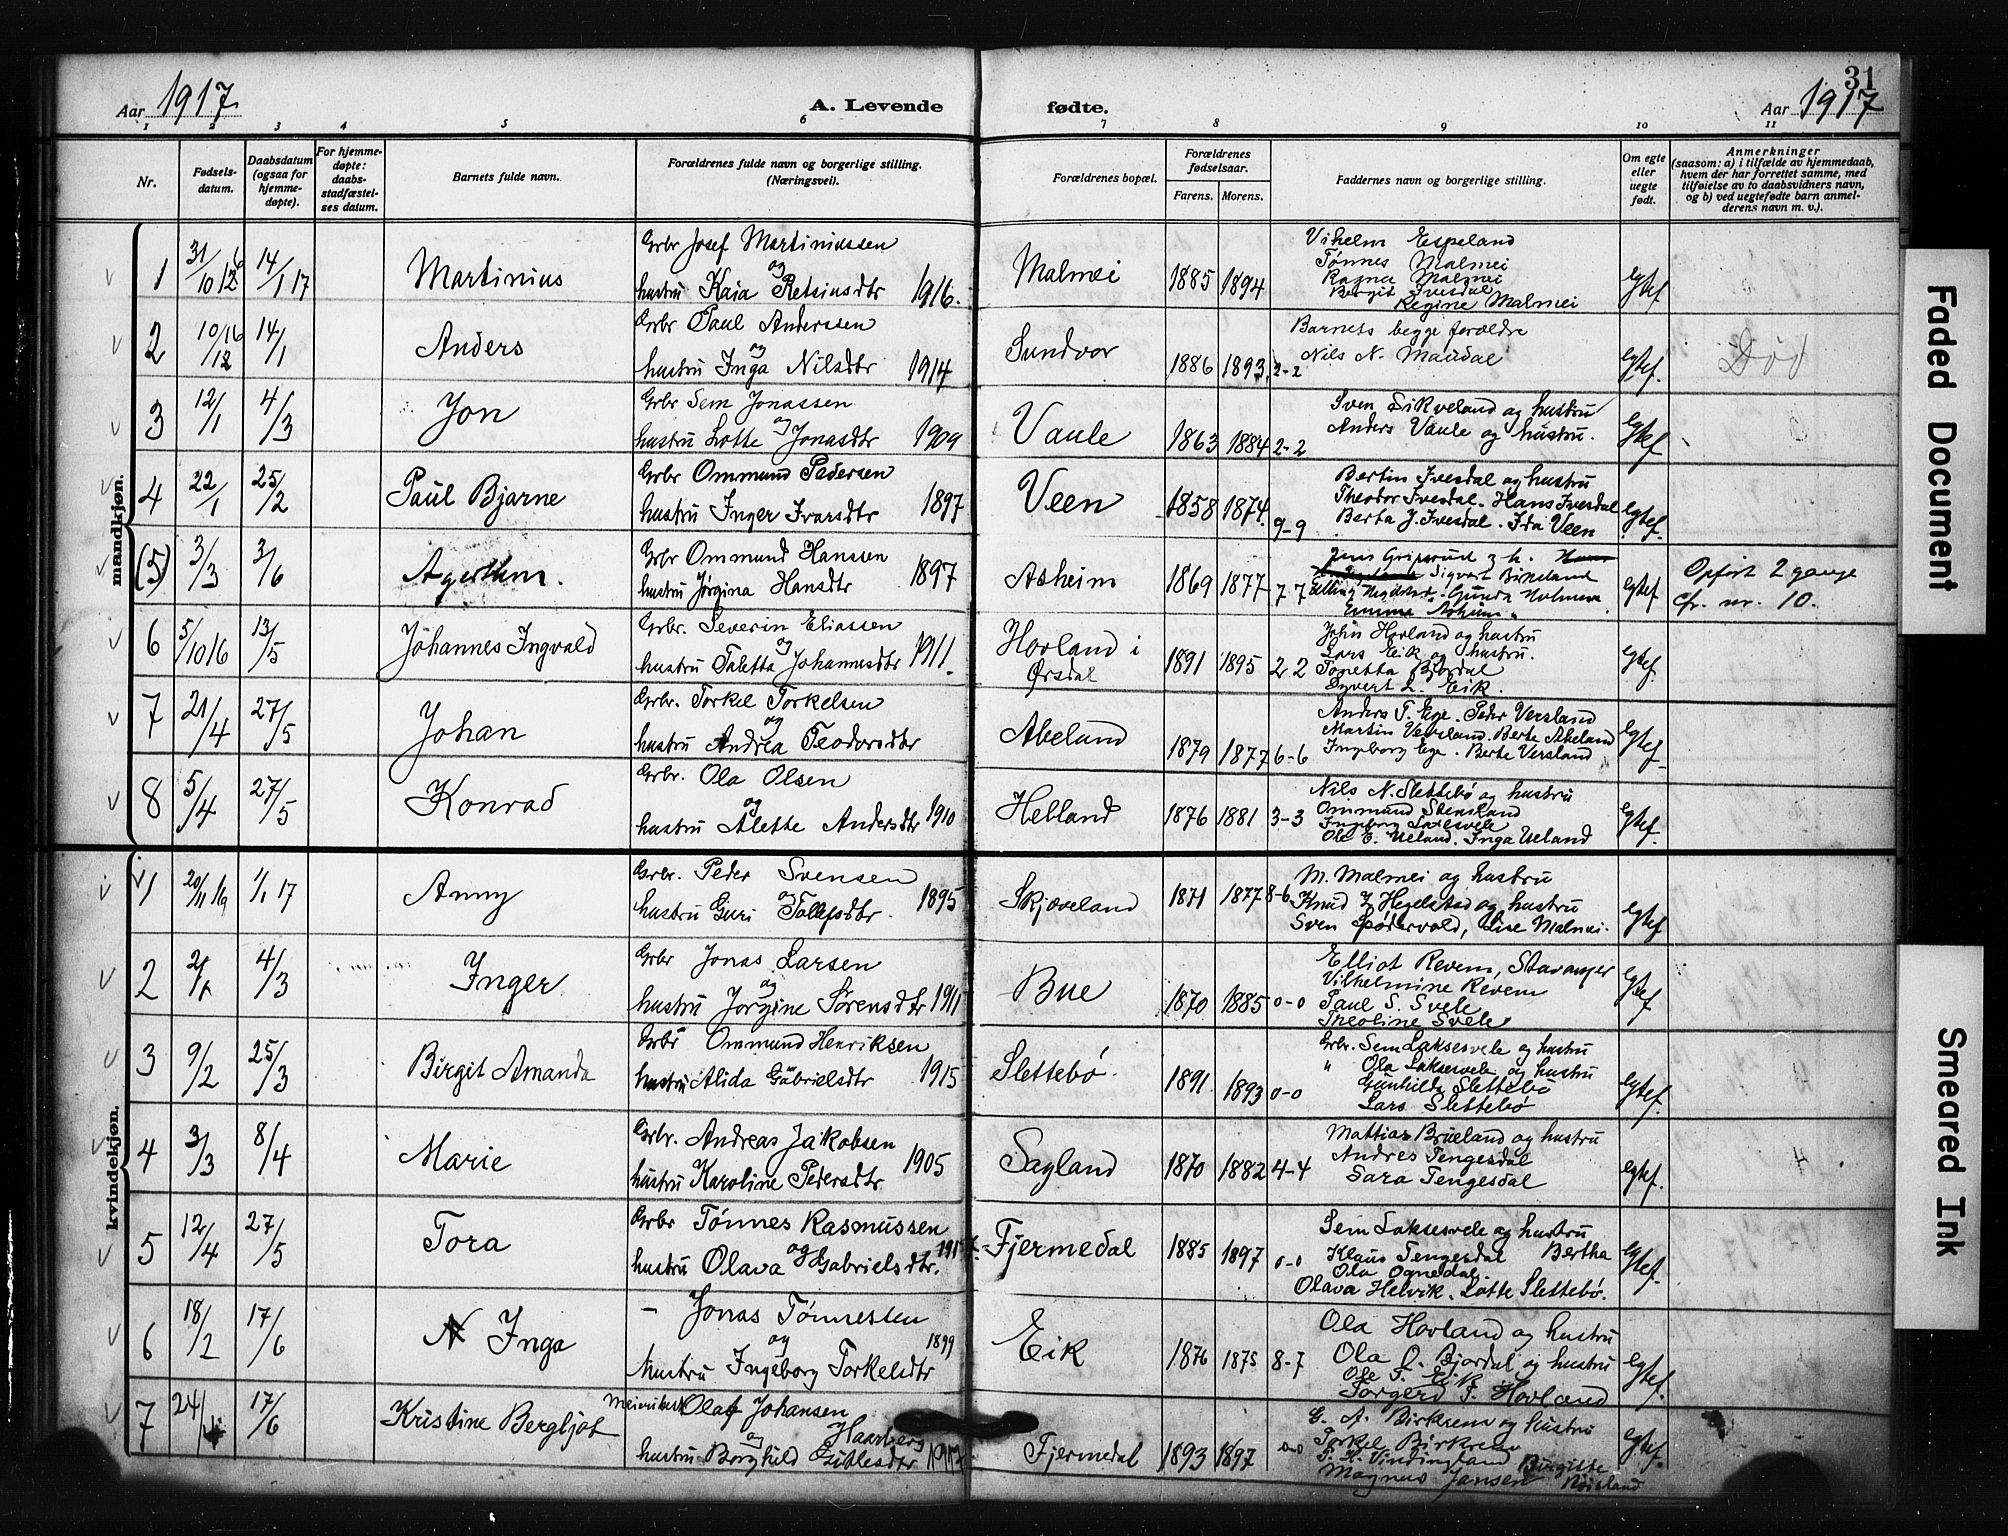 Aar 1917
A. Levende fødte.
31
Aar 1917
1 2 3 4 5 6 7 8 9 10 11
Nr.
Fødsels-datum.
Daabsdatum (ogsaa for hjemme-døpte).
For hjemme-døpte: daabs-stadfæstel-ses datum.
Barnets fulde navn.
Forældrenes fulde navn og borgerlige stilling. (Næringsvei).
Forældrenes bopæl.
Forældrenes fødselsaar.
Farens. Morens.
Faddernes navn og borgerlige stilling.
Om egte eller uegte født.
Anmerkninger
(saasom: a) i tilfælde av hjemmedaab, hvem der har forrettet samme, med tilføielse av to daabsvidners navn, og b) ved uegtefødte barn anmel-derens navn m. v.).
mandkjøn.
1 31/10 14/1 17 Martinius
Grbr Josef Martiniussen
og
hustru Kaia Retsiusdtr 1916.
Malmei 1885 1894
Vihelm Espeland
Tønnes Malmei
Ragna Malmei
Bergit Ivesdal
Regine Malmei
Egtef
2 10/12 16 14/1 Anders
Grbr Paul Anderssen
og
hustru Inga Nilsdtr 1914
Sundvor 1886 1893 2-2
Barnets begge forældre
Nils N. Maudal
Egtef.
Død
3 12/1 4/3 Jon
Grbr Sem Jonassen
og
hustru Lotte Jonasdtr 1909
Vaule 1863 1884 2-2
Sven Sikveland og hustru
Anders Vaule og hustru.
Egtef.
4 22/1 25/2 Paul Bjarne
Grbr Ommund Pedersen
hustru Inger Ivarsdtr 1897
Veen 1858 1874. 9-9
Bertin Ivesdal og hustru
Theodor Ivesdal. Hans Ivesdal
Berta J. Ivesdal. Ida Veen
Egtef.
(5) 3/3 3/6
Grbr Ommund Hanssen
hustru Jørgina Hansdtr 1897
Asheim 1869 1877 7-7
Sigvert Birkeland
Gunda
Emma Asheim
Egtef
Opført 2 gange
cfr. nr. 10.
6 5/10 16 13/5 Johannes Ingvald
Grbr. Severin Eliassen
og
hustru Taletta Johannesdtr 1911.
Hovland i
Ørsdal
1891 1895 2 2
John Hovland og hustru
Lars Eik og hustru.
Tonetta Bjordal
Syvert L. Eik.
Egtef.
7 21/4 27/5 Johan
Grbr. Torkel Torkelsen
og
hustru Andrea Teodorsdtr
Abeland 1879 1877 6-6
Anders T. Ege. Peder Versland
Martin Versland. Berte Abeland
Ingeborg Ege. Berte Versland
Egtef.
8 5/4 27/5 Konrad
Grbr. Ola Olsen
og
hustru Alette Andersdtr 1910
Helland 1876 1881 3-3
Nils N. Slettebø og hustru
Ommund Stensland
Ingeborg Laksesvele
Ole E. Ueland. Inga Ueland
Egtef.
kvindekjøn.
1 20/11 16 1/1 17 Anny
Grbr. Peder Svensen
og
hustru Guri Tollefsdtr. 1895
Skjæveland 1871 1877 8-6
M. Malmei og hustru
Knud J. Hegelstad og hustru
Sven Spødervold, Lise Malmei.
Egtef
2 2/1 4/3 Inger
Grbr Jonas Larsen
og
hustru Jorgine Sørensdtr 1911
Bue 1870 1885 0-0
Elliot Revem, Stavanger
Vilhelmine Revem
Paul S. Svele
Theoline Svele
Egtef
3 9/2 25/3 Birgit Amanda
Grbr Ommund Henriksen
hustru Alida Gabrielsdtr 1915
Slettebø. 1891 1893 0-0
Grbr. Sem Laksesvele og hustru
" Ola Laksesvele og hustru
Gunhilda Slettebø
Lars Slettebø
Egtef.
4 3/3 8/4 Marie
Grbr. Andreas Jakobsen
hustru Karoline Pedersdtr 1905
Sagland 1870 1882 4-4
Mattias Brueland og hustru
Andres Tengesdal
Sara Tengesdal
Egtef.
5 12/4 27/5 Tora
Grbr Tønnes Rasmussen
og
hustru Olava Gabrielsdtr.
Fjermedal 1885 1897 0-0
Sem Laksesvele og hustru
Klaus Tengesdal Bertha
Ola Ognedal.
Olava Helvik. Lotte Slettebø.
Egtef.
6 18/2 17/6 Inga
- Jonas Tønnessen
og 1899
hustru Ingeborg Torkelsdtr
Eik 1876 1875 8-7
Ola Hovland og hustru
Ola O. Bjordal og hustru
Ole T. Eik
Torgerd T. Hovland
Egtef.
7 24/4 17/6 Kristine Bergljot
Olaf Johansen
og Haarberg
hustru Borghild Gitlesdtr
Fjermedal 1893 1897 0-0
G. A. Birkrem og hustru
Torkel Birkrem
T. H. Vindingland Birgitte
Magnus Jansen Røisland
Egtef.
Faded Document
Smeared Ink